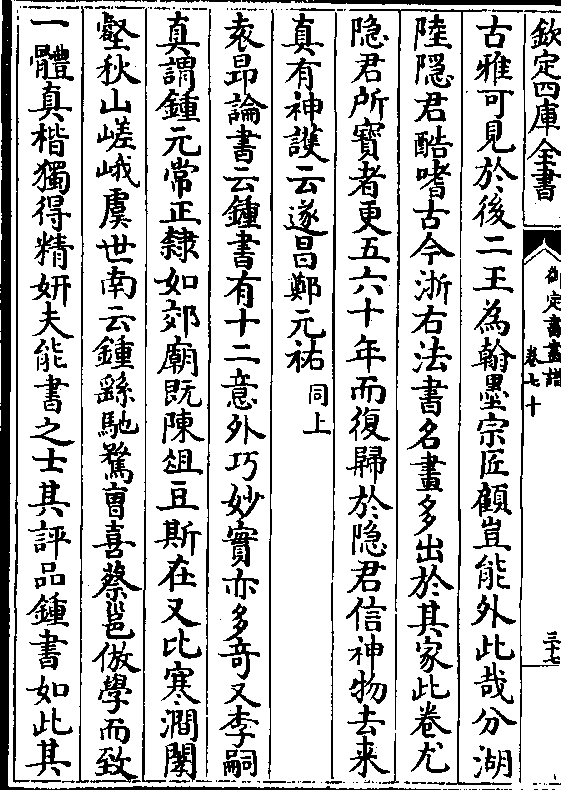 欽定四庫全書
御定書畫譜
卷七十
三十七
古雅可見於後二王為翰墨宗匠顧豈能外此哉分湖
陸隠君酷嗜古今浙右法書名畫多出於其家此卷尤
隐君所寳者更五六十年而復歸於隐君信神物去来
真有神護云遂昌鄭元祐同上
袁昂論書云鍾書有十二意外巧妙實亦多竒又李嗣
真謂鍾元常正隸如郊廟既陳俎豆斯在又比寒澗闃
壑秋山嵯峨虞世南云鍾繇馳騖曺喜蔡邕倣學而致
一體真楷獨得精妍夫能書之士其評品鍾書如此其